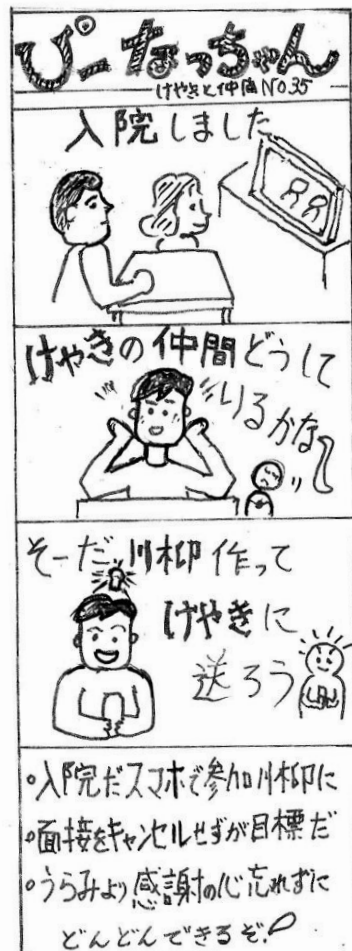 ぴーなっちゃん
けやきと仲間 NO.35
入院しました
けやきの仲間どうして
いるかな
そーだ川柳作って
けやきに
送ろう
・入院だスマホで参加川柳に
・面接をキャンセルせずが目標だ
・うらみより感謝の心忘れずに
どんどんできるぞ